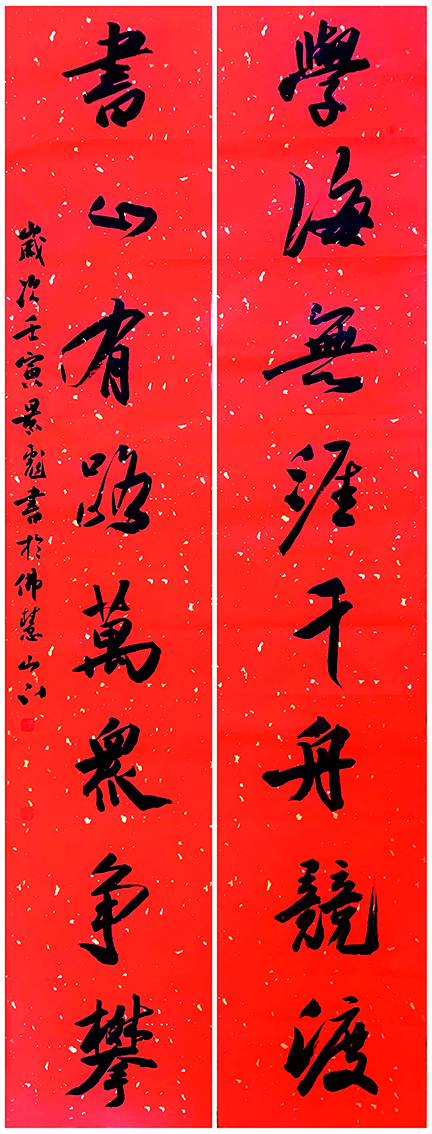 學海無涯千舟競渡
書山有路萬衆争攀
歲次壬寅景彪書於佛慧山下